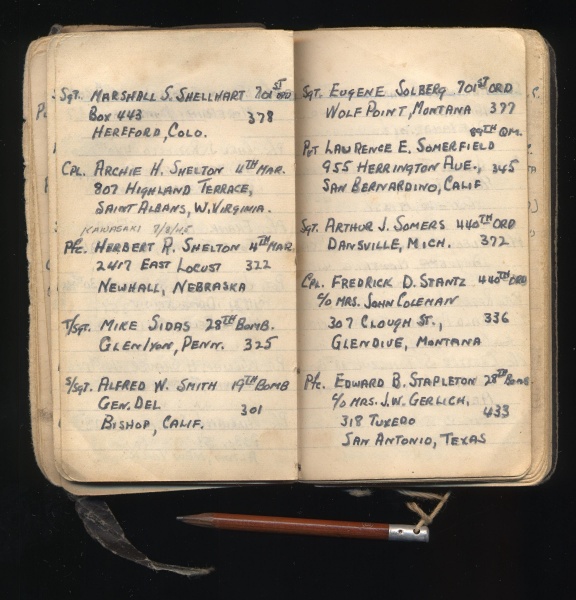 Sgt. MARSHALL S. SHELLHART 701ST ORD
BOX 443 378
HEREFORD, COLO.
CPL. ARCHIE H. SHELTON 4TH MAR.
807 HIGHLAND TERRACE,
SAINT ALBANS, W. VIRGINIA.
KAWASAKI
Pfc. HERBERT R. SHELTON 4TH MAR
2417 EAST LOCUST 322
NEWHALL, NEBRASKA
T/Sgt. MIKE SIDAS 28TH BOMB.
GLENLYON, PENN. 325
S/Sgt. ALFRED W. SMITH 19TH BOMB
GEN. DEL 301
BISHOP, CALIF.
Sgt. EUGENE SOLBERG 701ST ORD
WOLF POINT, MONTANA 377
QM.
Pvt LAWRENCE E. SOMERFIELD
955 HERRINGTON AVE., 345
SAN BERNARDINO, CALIF
Sgt. ARTHUR J. SOMERS 440TH ORD
DANSVILLE, MICH. 372
CPL. FREDRICK D. STANTZ 440TH ORD
c/o MRS. JOHN COLENAN
307 CLOUGH ST., 336
GLENDIVE, MONTANA
Pfc. EDWARD B. STAPLETON 28TH BOMB
c/o MRS. J.W. GERLICH, 433
318 TUXEDO
SAN ANTONIO, TEXAS